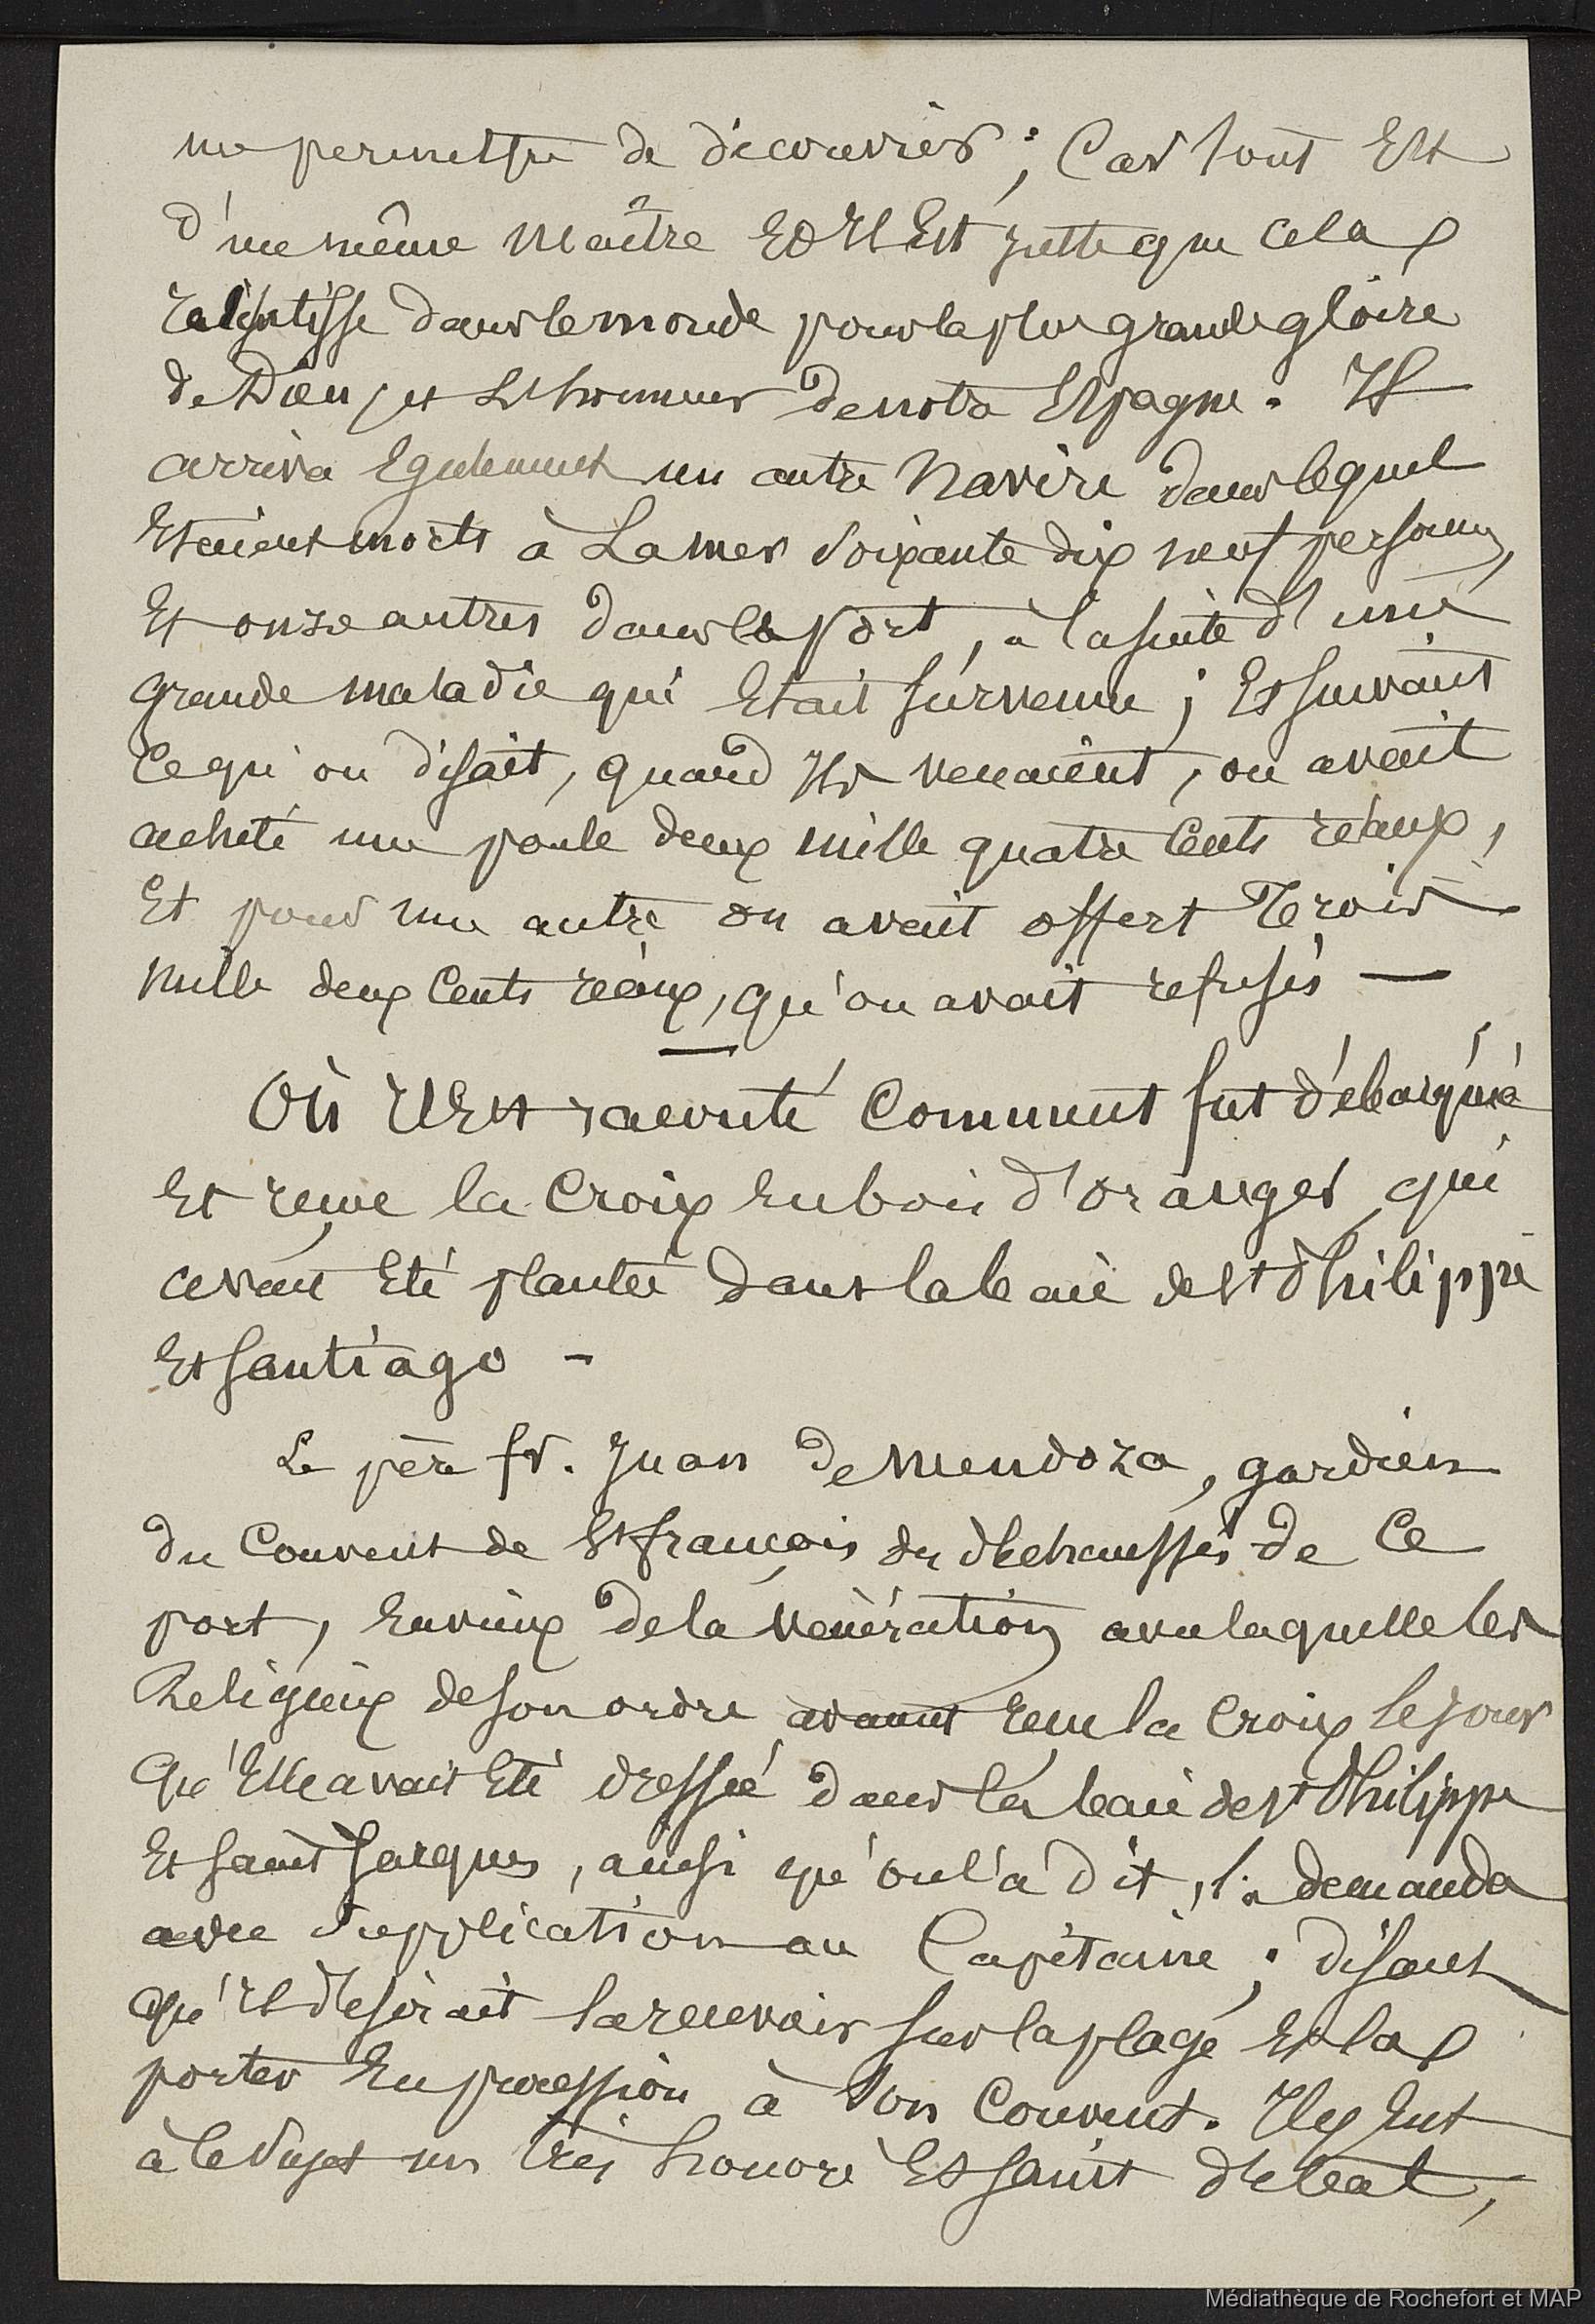 me permettre de découvrir ; Car tout Est
d'un même Maitre Et Il Est juste que cela
retentisse dans le monde pour la plus grande gloire
de Dieu, et L'honneur de notre Espagne. Il
arriva Egalement un autre Navire dans lequel
Etaient morts à La mer Soixante dix neuf personnes,
Et onze autres dans le port, à la suite d'une
grande maladie qui Etait survenue ; Et suivant
Ce qu'on disait, quand Ils venaient, on avait
acheté une poule deux mille quatre Cents réaux,
Et pour une autre on avait offert Trois
Mille deux Cents réaux, qu'on avait refusés —
Où Il Est raconté Comment fut débarquée
Et reçue la Croix En bois d'oranger, qui
avait Eté plantée Dans la baie de St Philippe
Et Santiago -
Le père fr. Juan de Mendoza, gardien
du Couvent de St françois des déchaussés de Ce
port, Envieux de la vénération avec laquelle les
Religieux de son ordre avaient reçu la Croix le jour
Qu'Elle avait Eté dressée dans la baie de St Philippe
Et Saint Jacques, ainsi qu'on l'a dit, la demanda
avec Supplication au Capitaine ; disant
qu'Il désirait la recevoir sur la plage Et la
porter En procession à Son Couvent. Il y Eut
à Ce Sujet un très honoré Et saint débat,
Médiathèque de Rochefort et MAP